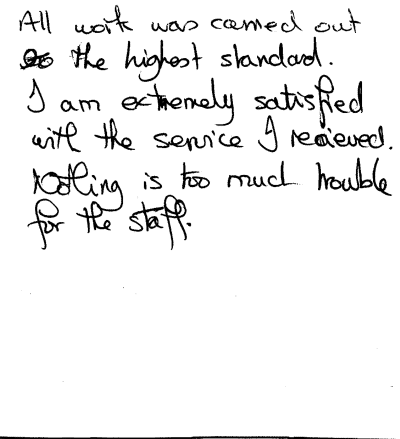 All work was carried out
to the highest standard.
I am extremely satisfied
with the service I recieved.
Nothing is too much trouble
for the staff.